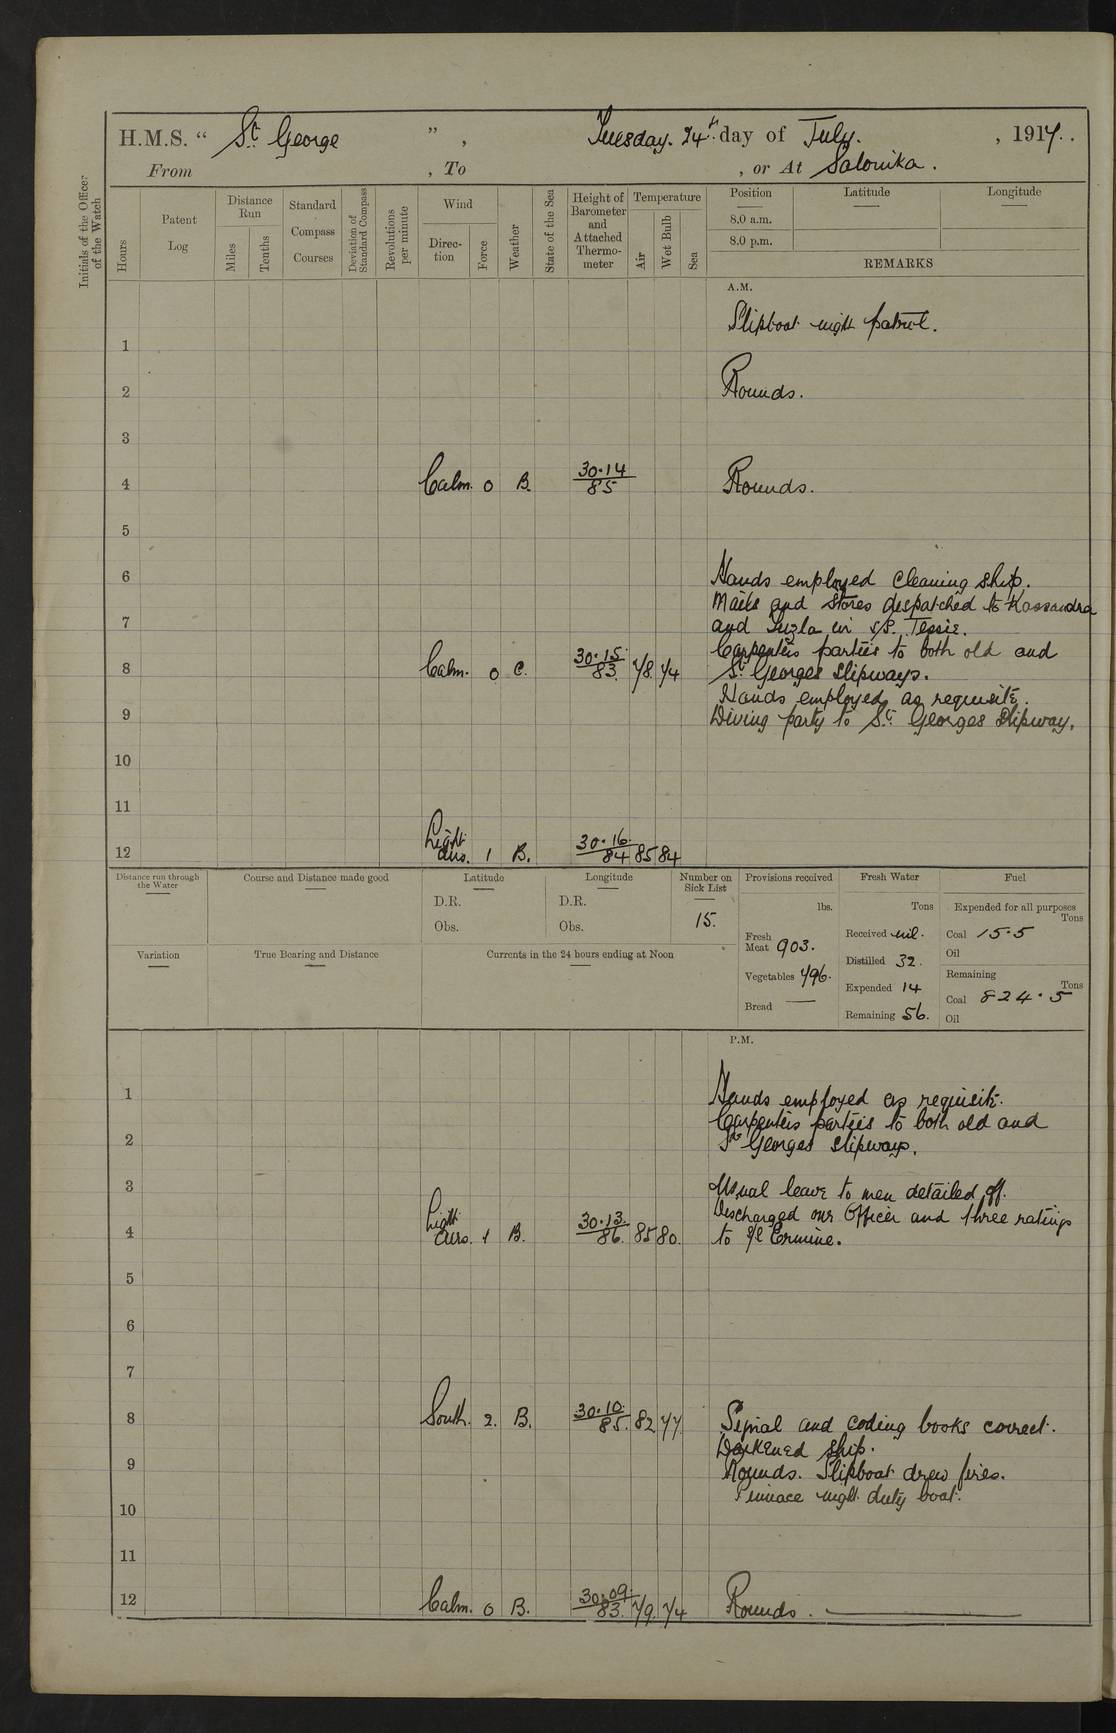 H.M.S. “ St. George ” , Tuesday. 24th day of July. , 1917.
From , To , or At Salonika.
Initials of the Officer of the Watch
Hours
Patent Log
Distance Run
Miles
Tenths
Standard Compass Courses
Deviation of Standard Compass
Revolutions per minute
Wind
Direction
Force
Weather
State of the Sea
Height of Barometer and Attached Thermometer
Temperature
Air
Wet Bulb
Sea
Position Latitude Longitude
8.0 a.m.
8.0 p.m.
REMARKS
A.M.
Slipboat night patrol.
1
2 Rounds.
3
4 Calm. 0 B. 30.14 85 Rounds.
5
6 Hands employed cleaning ship.
Mails and stores despatched to Kassandra
7 and Tuzla in s/s. Tessie.
Carpenters parties to both old and
8 Calm. 0 C. 30.15. 83. 78. 74 St. Georges slipways.
Hands employed as requisite.
9 Diving party to St. Georges Slipway.
10
11
12 Light airs. 1 B. 30.16. 84 85 84
Distance run through the Water
Course and Distance made good
Latitude
D.R.
Obs.
Longitude
D.R.
Obs.
Number on Sick List
15.
Variation
True Bearing and Distance
Currents in the 24 hours ending at Noon
Provisions received
lbs.
Fresh Meat 903.
Vegetables 796.
Bread —
Fresh Water
Tons
Received nil.
Distilled 32.
Expended 14
Remaining 56.
Fuel
Expended for all purposes
Tons
Coal 15.5
Oil
Remaining
Tons
Coal 824.5
Oil
P.M.
1 Hands employed as requisite.
Carpenters parties to both old and
2 St. Georges slipways.
3 Usual leave to men detailed off.
Discharged one Officer and three ratings
4 Light airs. 1 B. 30.13. 86. 85 80. to s/s Ermine.
5
6
7
8 South. 2. B. 30.10. 85. 82 77. Signal and coding books correct.
Darkened ship.
9 Rounds. Slipboat drew fires.
Pinnace night duty boat.
10
11
12 Calm. 0 B. 30.09. 83. 79. 74 Rounds.